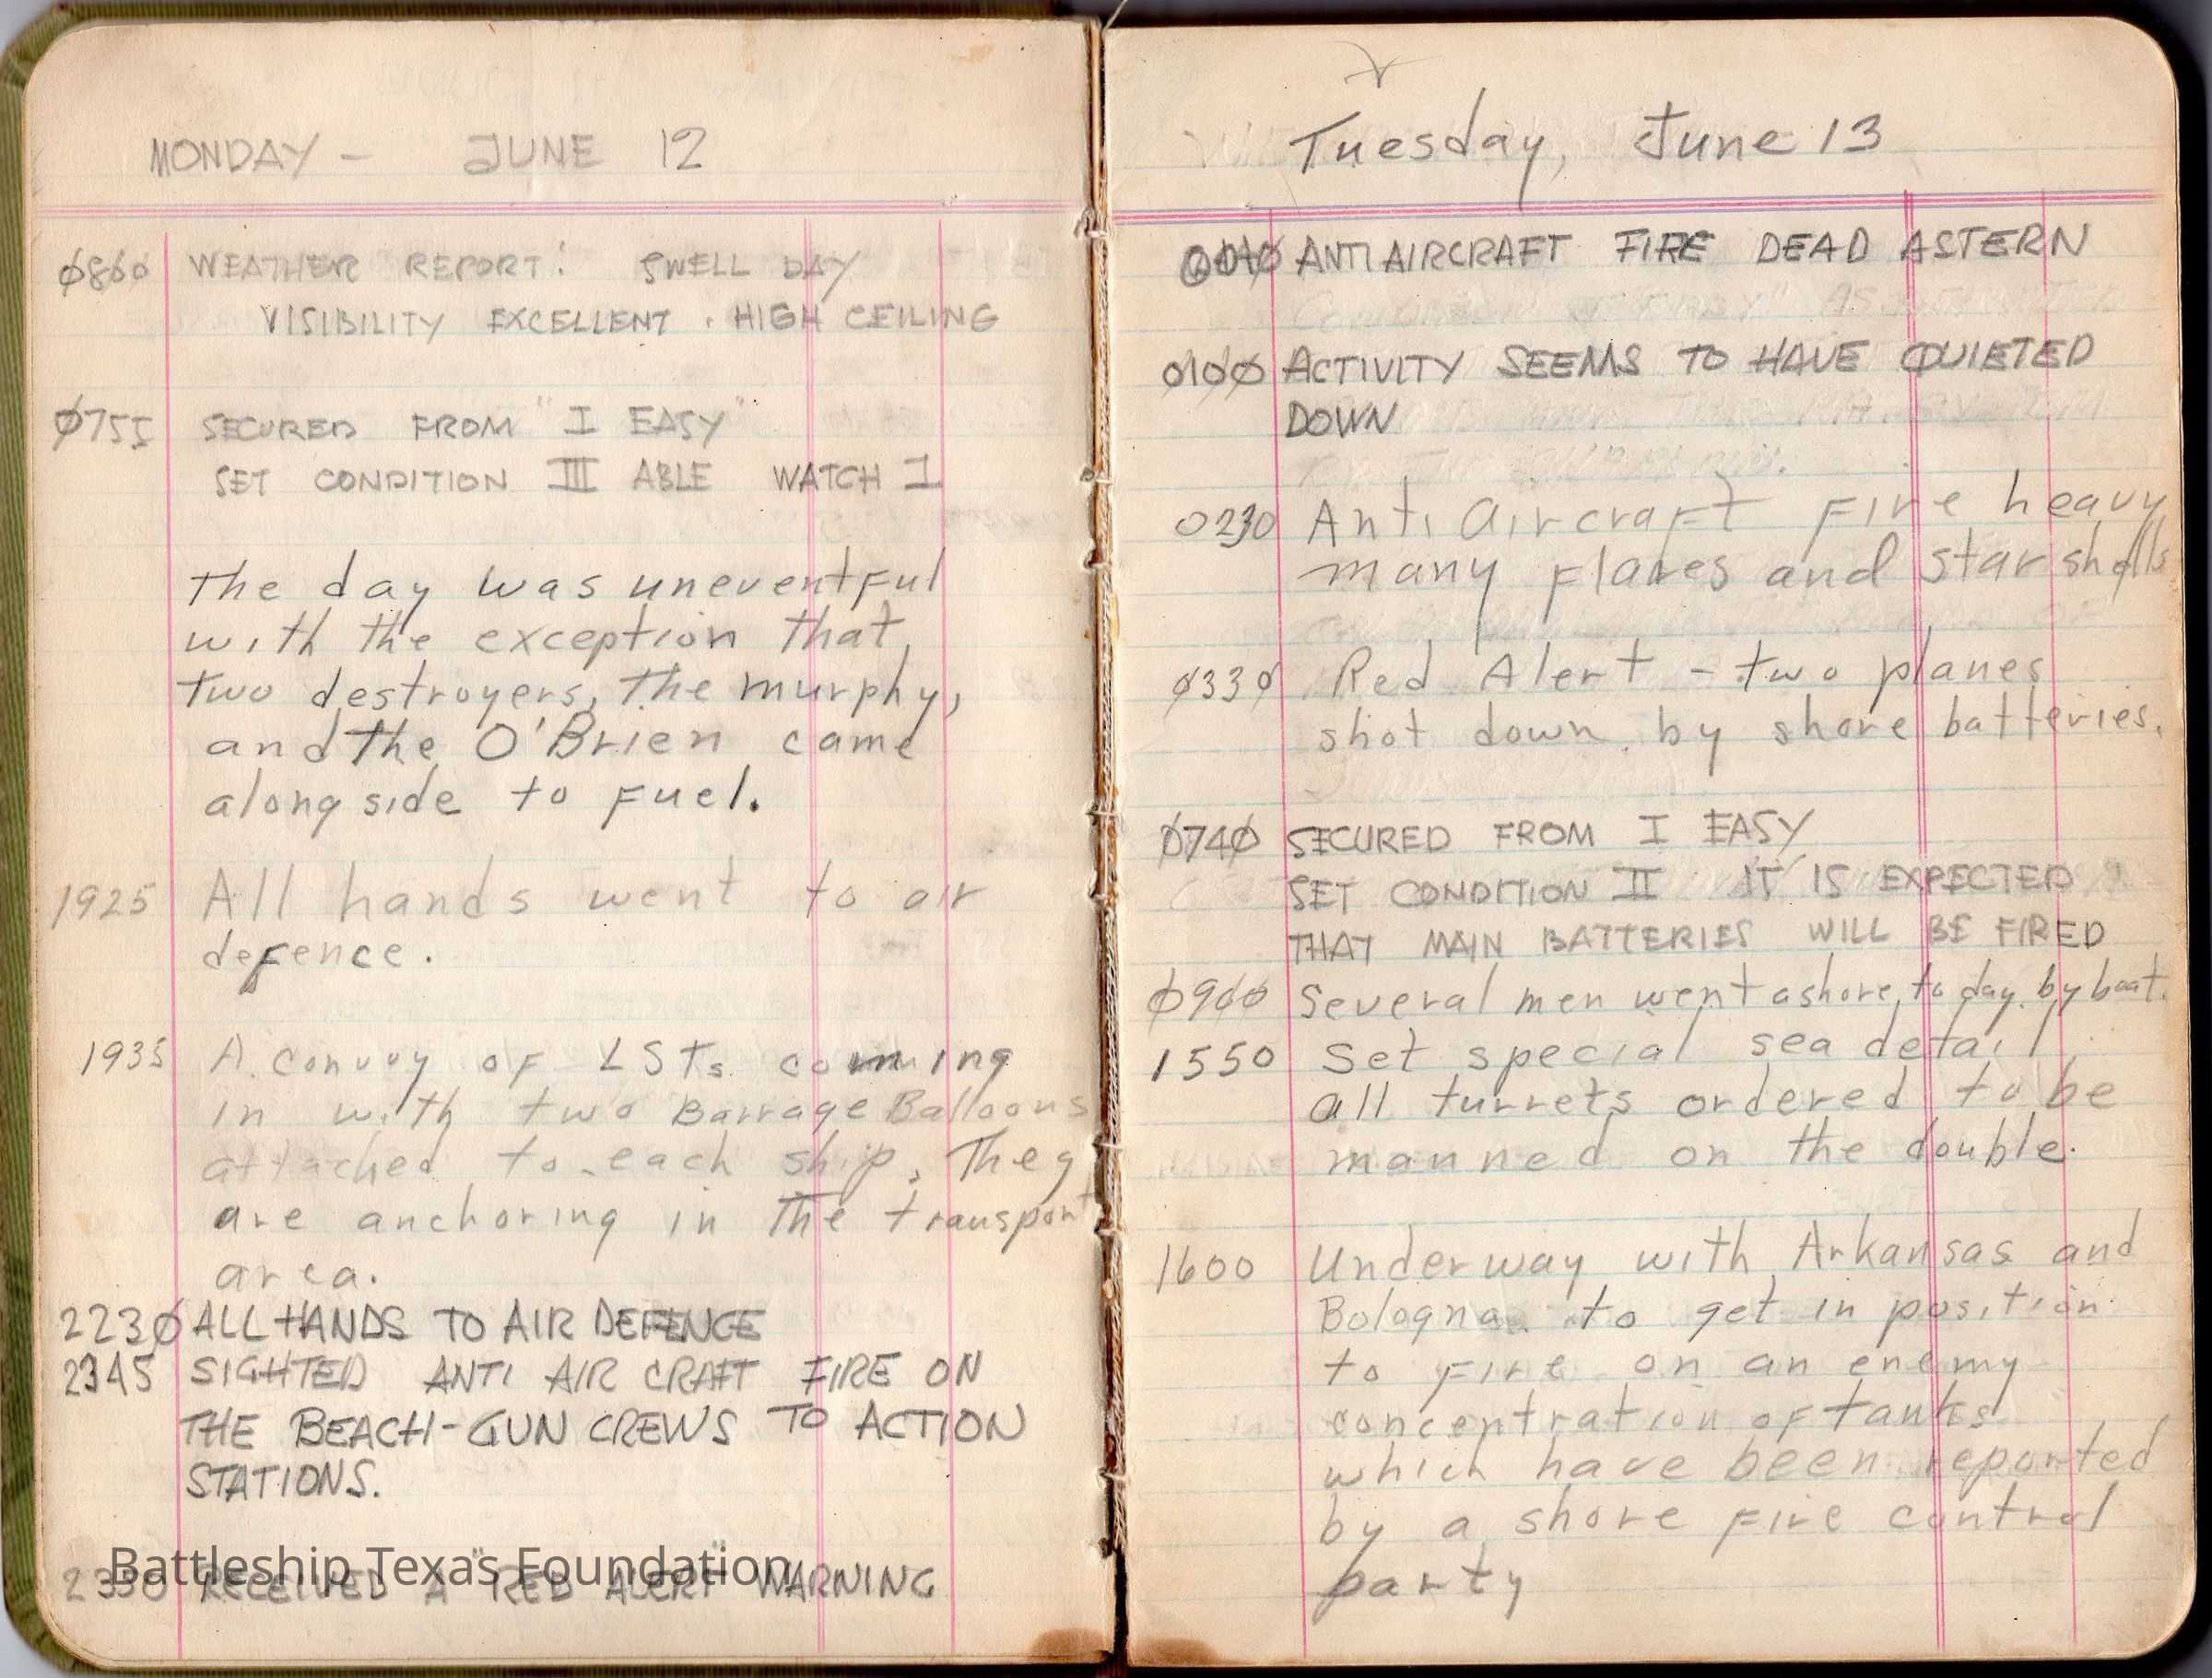 MONDAY - JUNE 12
0800 WEATHER REPORT: SWELL DAY
VISIBILITY EXCELLENT. HIGH CEILING
0755 SECURED FROM "I EASY"
SET CONDITION III ABLE WATCH I
The day was uneventful
with the exception that,
two destroyers, the murphy,
and the O'Brien came
along side to fuel.
1925 All hands went to air
defence.
1935 A convoy of LSTs comming
in with two Barrage Balloons
attached to each ship. They
are anchoring in the transport
area.
2230 ALL HANDS TO AIR DEFENCE
2345 SIGHTED ANTI AIR CRAFT FIRE ON
THE BEACH-GUN CREWS TO ACTION
STATIONS.
Battleship Texas Foundation
2350 RECEIVED A "RED ALERT" WARNING
Tuesday, June 13
0040 ANTI AIRCRAFT FIRE DEAD ASTERN
0100 ACTIVITY SEEMS TO HAVE QUIETED
DOWN
0230 Anti Aircraft Fire heavy
many flares and star shells
0330 Red Alert - two planes
shot down by shore batteries.
0740 SECURED FROM I EASY
SET CONDITION II IT IS EXPECTED
THAT MAIN BATTERIES WILL BE FIRED
0900 Several men went ashore to day by boat.
1550 Set special sea detail
all turrets ordered to be
manned on the double.
1600 Underway with Arkansas and
Bologna to get in position
to fire on an enemy
concentration of tanks
which have been reported
by a shore fire control
party